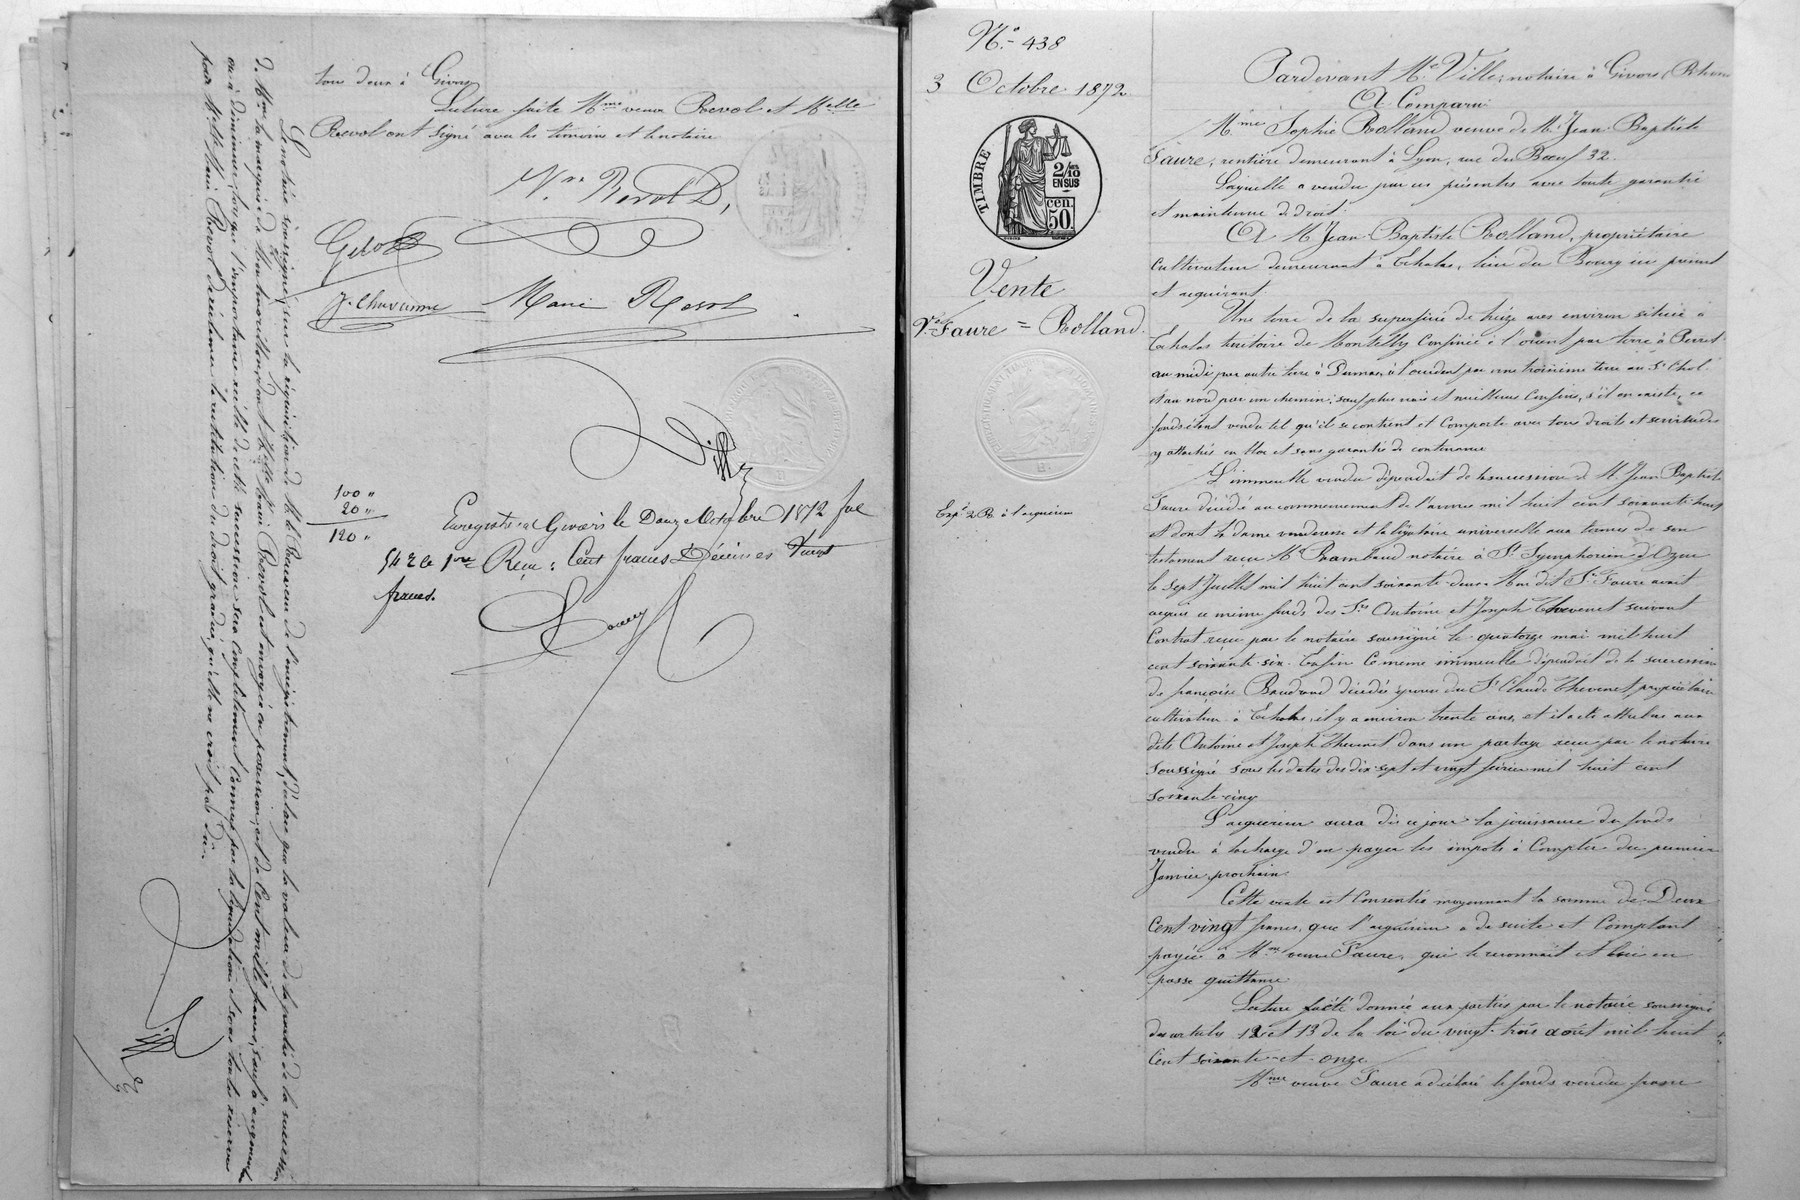 tous deux à Givors
Lecture faite Mme veuve Revol et Melle
Revol ont signé avec les témoins et le notaire
Ve Revol D,
J. Chavanne
Marie Revol
Ville
100 "
20 "
120 "
Enregistré à Givors le Douze Octobre 1872 fol
54 Re Cse 1ere Reçu : Cent francs Décimes Vingt
francs.
Le notaire soussigné, sur la réquisition de M. le Receveur de l'enregistrement, déclare que la valeur de la partie de la succession
de Mme la marquise de Montmorillon, dont Melle Marie Revol est envoyée en possession, est de Cent mille francs, sauf à augmenter
ou à diminuer, lorsque l'importance réelle de cette succession sera complètement connue par la liquidation et sous toutes réserves
pour Melle Marie Revol de réclamer la restitution du droit gradué, qu'elle ne croit pas dû.
Ville
No. 438
3 Octobre 1872
TIMBRE
2/10 EN SUS
50 cen.
Vente
Ve Faure = Rolland
Expé 2 R à l'acquéreur
Pardevant Me Ville, notaire à Givors (Rhône
A Comparu
Mme Sophie Rolland veuve de M. Jean-Baptiste
Faure, rentière demeurant à Lyon, rue du Bœuf 32.
Laquelle a vendu par ces présentes avec toute garantie
et maintenue de droit.
A M. Jean-Baptiste Rolland, propriétaire
cultivateur demeurant à Echalas, lieu du Bourg ici présent
et acquérant
Une terre de la superficie de treize ares environ située à
Echalas territoire de Montelly Confinée à l'orient par terre à Perret
au midi par autre terre à Dumas, à l'occident par une troisième terre au Sr Chol
et au nord par un chemin; sauf plus vrais et meilleurs Confins, s'il en existe, ce
fonds étant vendu tel qu'il se contient et Comporte avec tous droits et servitudes
y attachés en bloc et sans garantie de contenance
L'immeuble vendu dépendait de la succession de M. Jean Baptiste
Faure décédé au commencement de l'année mil huit cent soixante-neuf
et dont la dame venderesse est la légataire universelle aux termes de son
testament reçu Me Rambaud notaire à St Symphorien d'Ozon
le sept Juillet mil huit cent soixante-deux. Mon dit Sr Faure avait
acquis ce même fonds des Srs Antoine et Joseph Thevenet suivant
Contrat reçu par le notaire soussigné le quatorze mai mil huit
cent soixante-six. Enfin le même immeuble dépendait de la succession
de françoise Baudrand décédée épouse du Sr Claude Thevenet propriétaire
cultivateur à Echalas, il y a environ trente ans, et il a été attribué aux
dits Antoine et Joseph Thevenet dans un partage reçu par le notaire
soussigné sous les dates des dix-sept et vingt février mil huit cent
soixante-cinq
L'acquéreur aura dès ce jour la jouissance du fonds
vendu à la charge d'en payer les impôts à Compter du premier
Janvier prochain.
Cette vente est Consentie moyennant la somme de Deux
Cent vingt francs, que l'acquéreur a de suite et Comptant
payée à Mme veuve Faure, qui le reconnaît et lui en
passe quittance
Lecture a été donnée aux parties par le notaire soussigné
des articles 12 et 13 de la loi du vingt-trois août mil huit
Cent soixante-et-onze
Mme veuve Faure a déclaré le fonds vendu franc